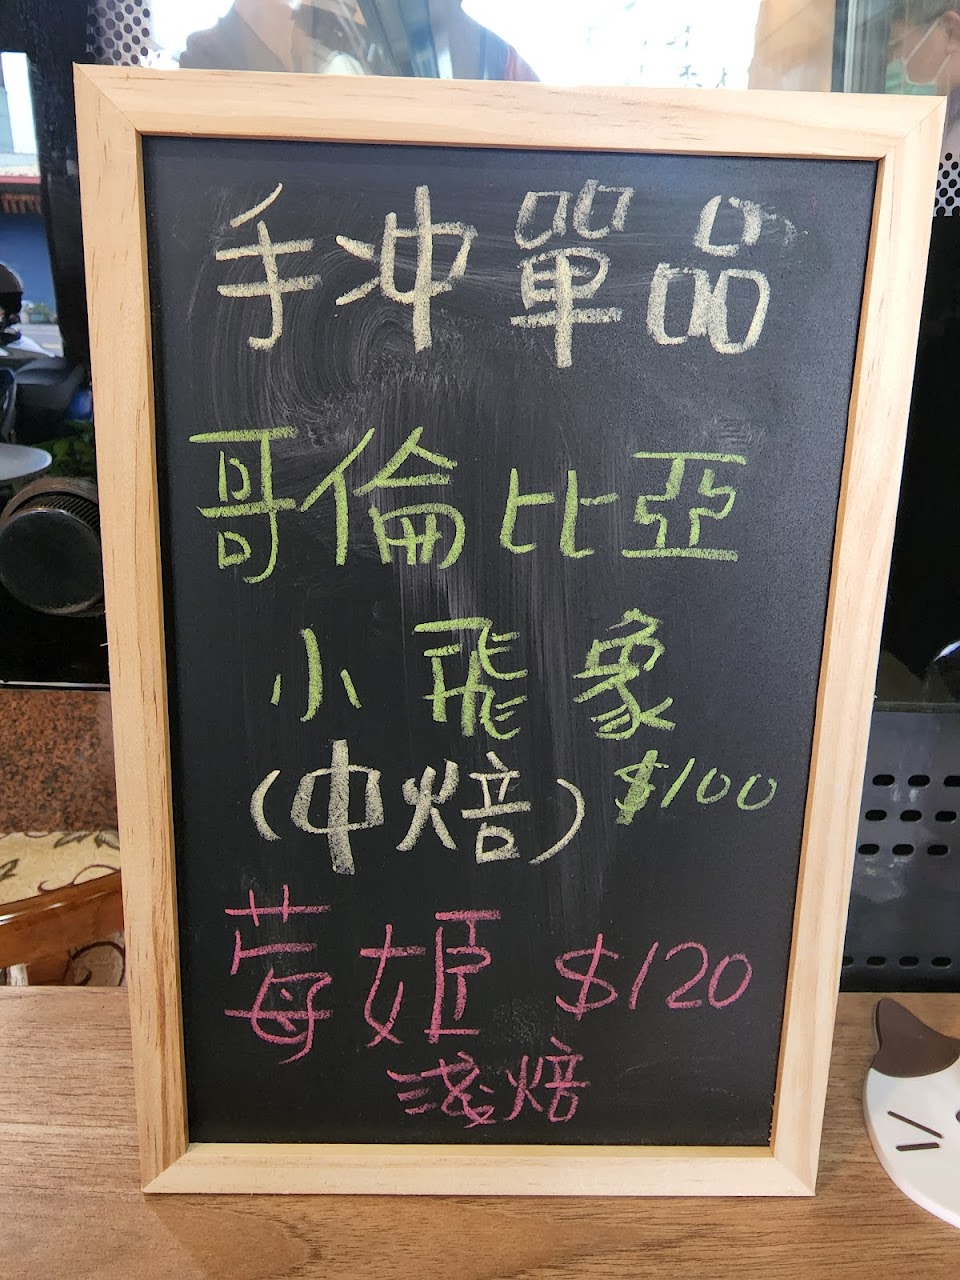 手冲單品
哥倫比亞
小飛象
(中焙) $100
莓姬 $120
淺焙